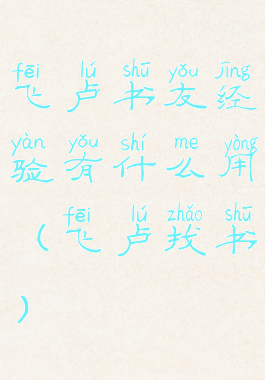 fēi lú shū yǒu jīng
飞卢书友经
yàn yǒu shí me yòng
验有什么用
fēi lú zhǎo shū
（飞卢找书
）